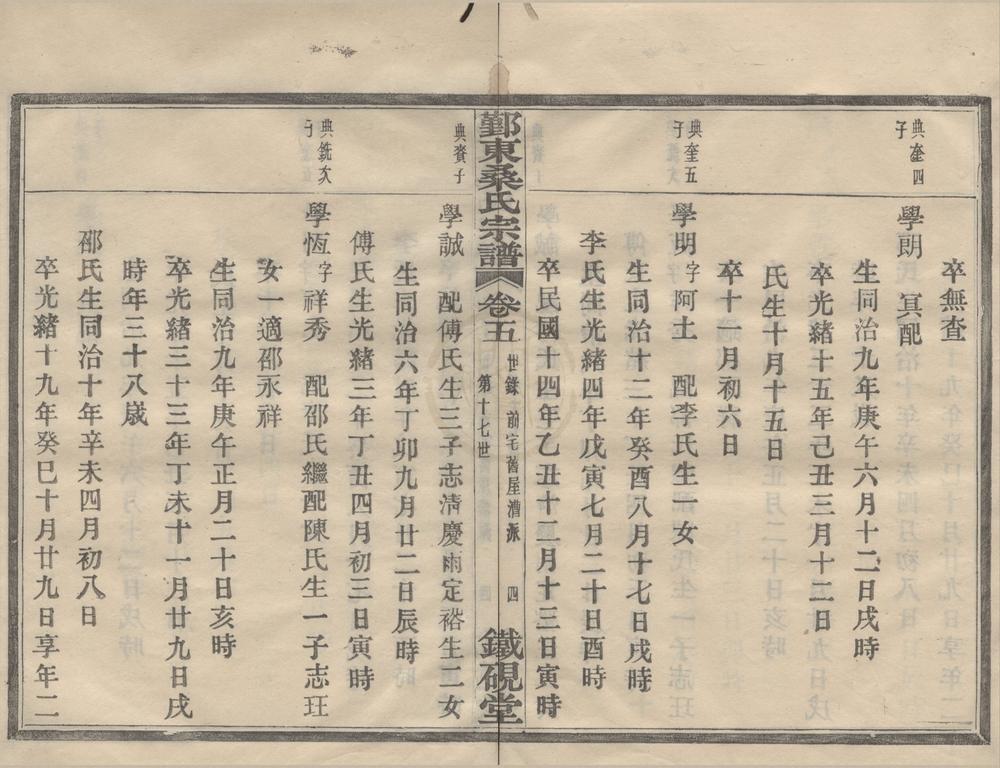 卒無查
典奎四子
學朗 冥配
生同治九年庚午六月十二日戌時
卒光緒十五年己丑三月十二日
氏生十月十五日
卒十一月初六日
典奎五子
學明字阿土 配李氏生一女
生同治十二年癸酉八月十七日戌時
李氏生光緒四年戊寅七月二十日酉時
卒民國十四年乙丑十二月十三日寅時
鄞東桑氏宗譜 卷五 世錄 前宅舊屋漕派 第十七世 四 鐵硯堂
典賚子
學誠 配傅氏生三子志清慶雨定裕生二女
生同治六年丁卯九月廿二日辰時
傅氏生光緒三年丁丑四月初三日寅時
典銑次子
學恆字祥秀 配邵氏繼配陳氏生一子志玨
女一適邵永祥
生同治九年庚午正月二十日亥時
卒光緒三十三年丁未十一月廿九日戌
時年三十八歲
邵氏生同治十年辛未四月初八日
卒光緒十九年癸巳十月廿九日享年二